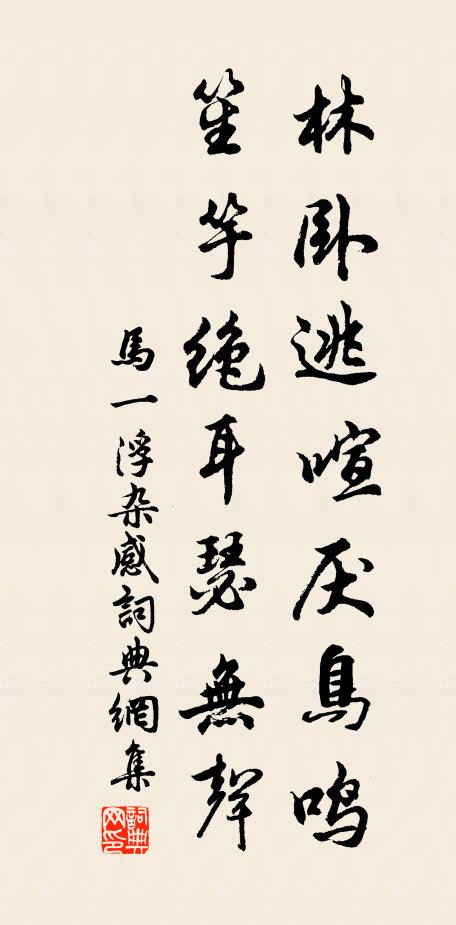 林卧逃喧厌鳥鳴
笙竽絶耳瑟無聲
馬一浮杂感詞典網集
詞典网印